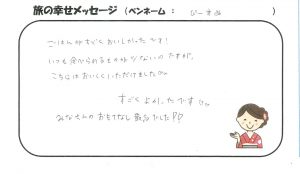 旅の幸せメッセージ（ペンネーム： ぴーまめ ）
ごはんがすごくおいしかったです!
いつも食べられるものが少ないのですが、
こちらはおいしくいただけました
すごくよかったです
みなさんのおもてなし最高でした!!